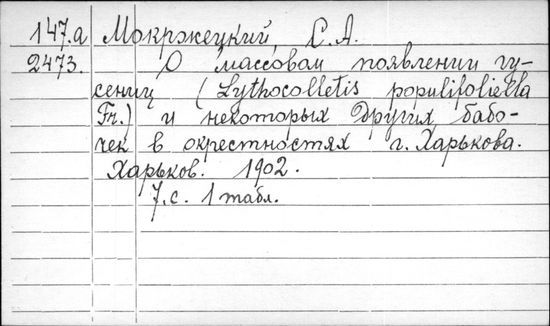 147.а Мокржецкий, С.А.
2473. О массовом появлении гу-
сениц (Lythocolletis populifoliella
Fr.) и некоторых других бабо-
чек в окрестностях г. Харькова.
Харьков. 1902.
7.с. 1 табл.